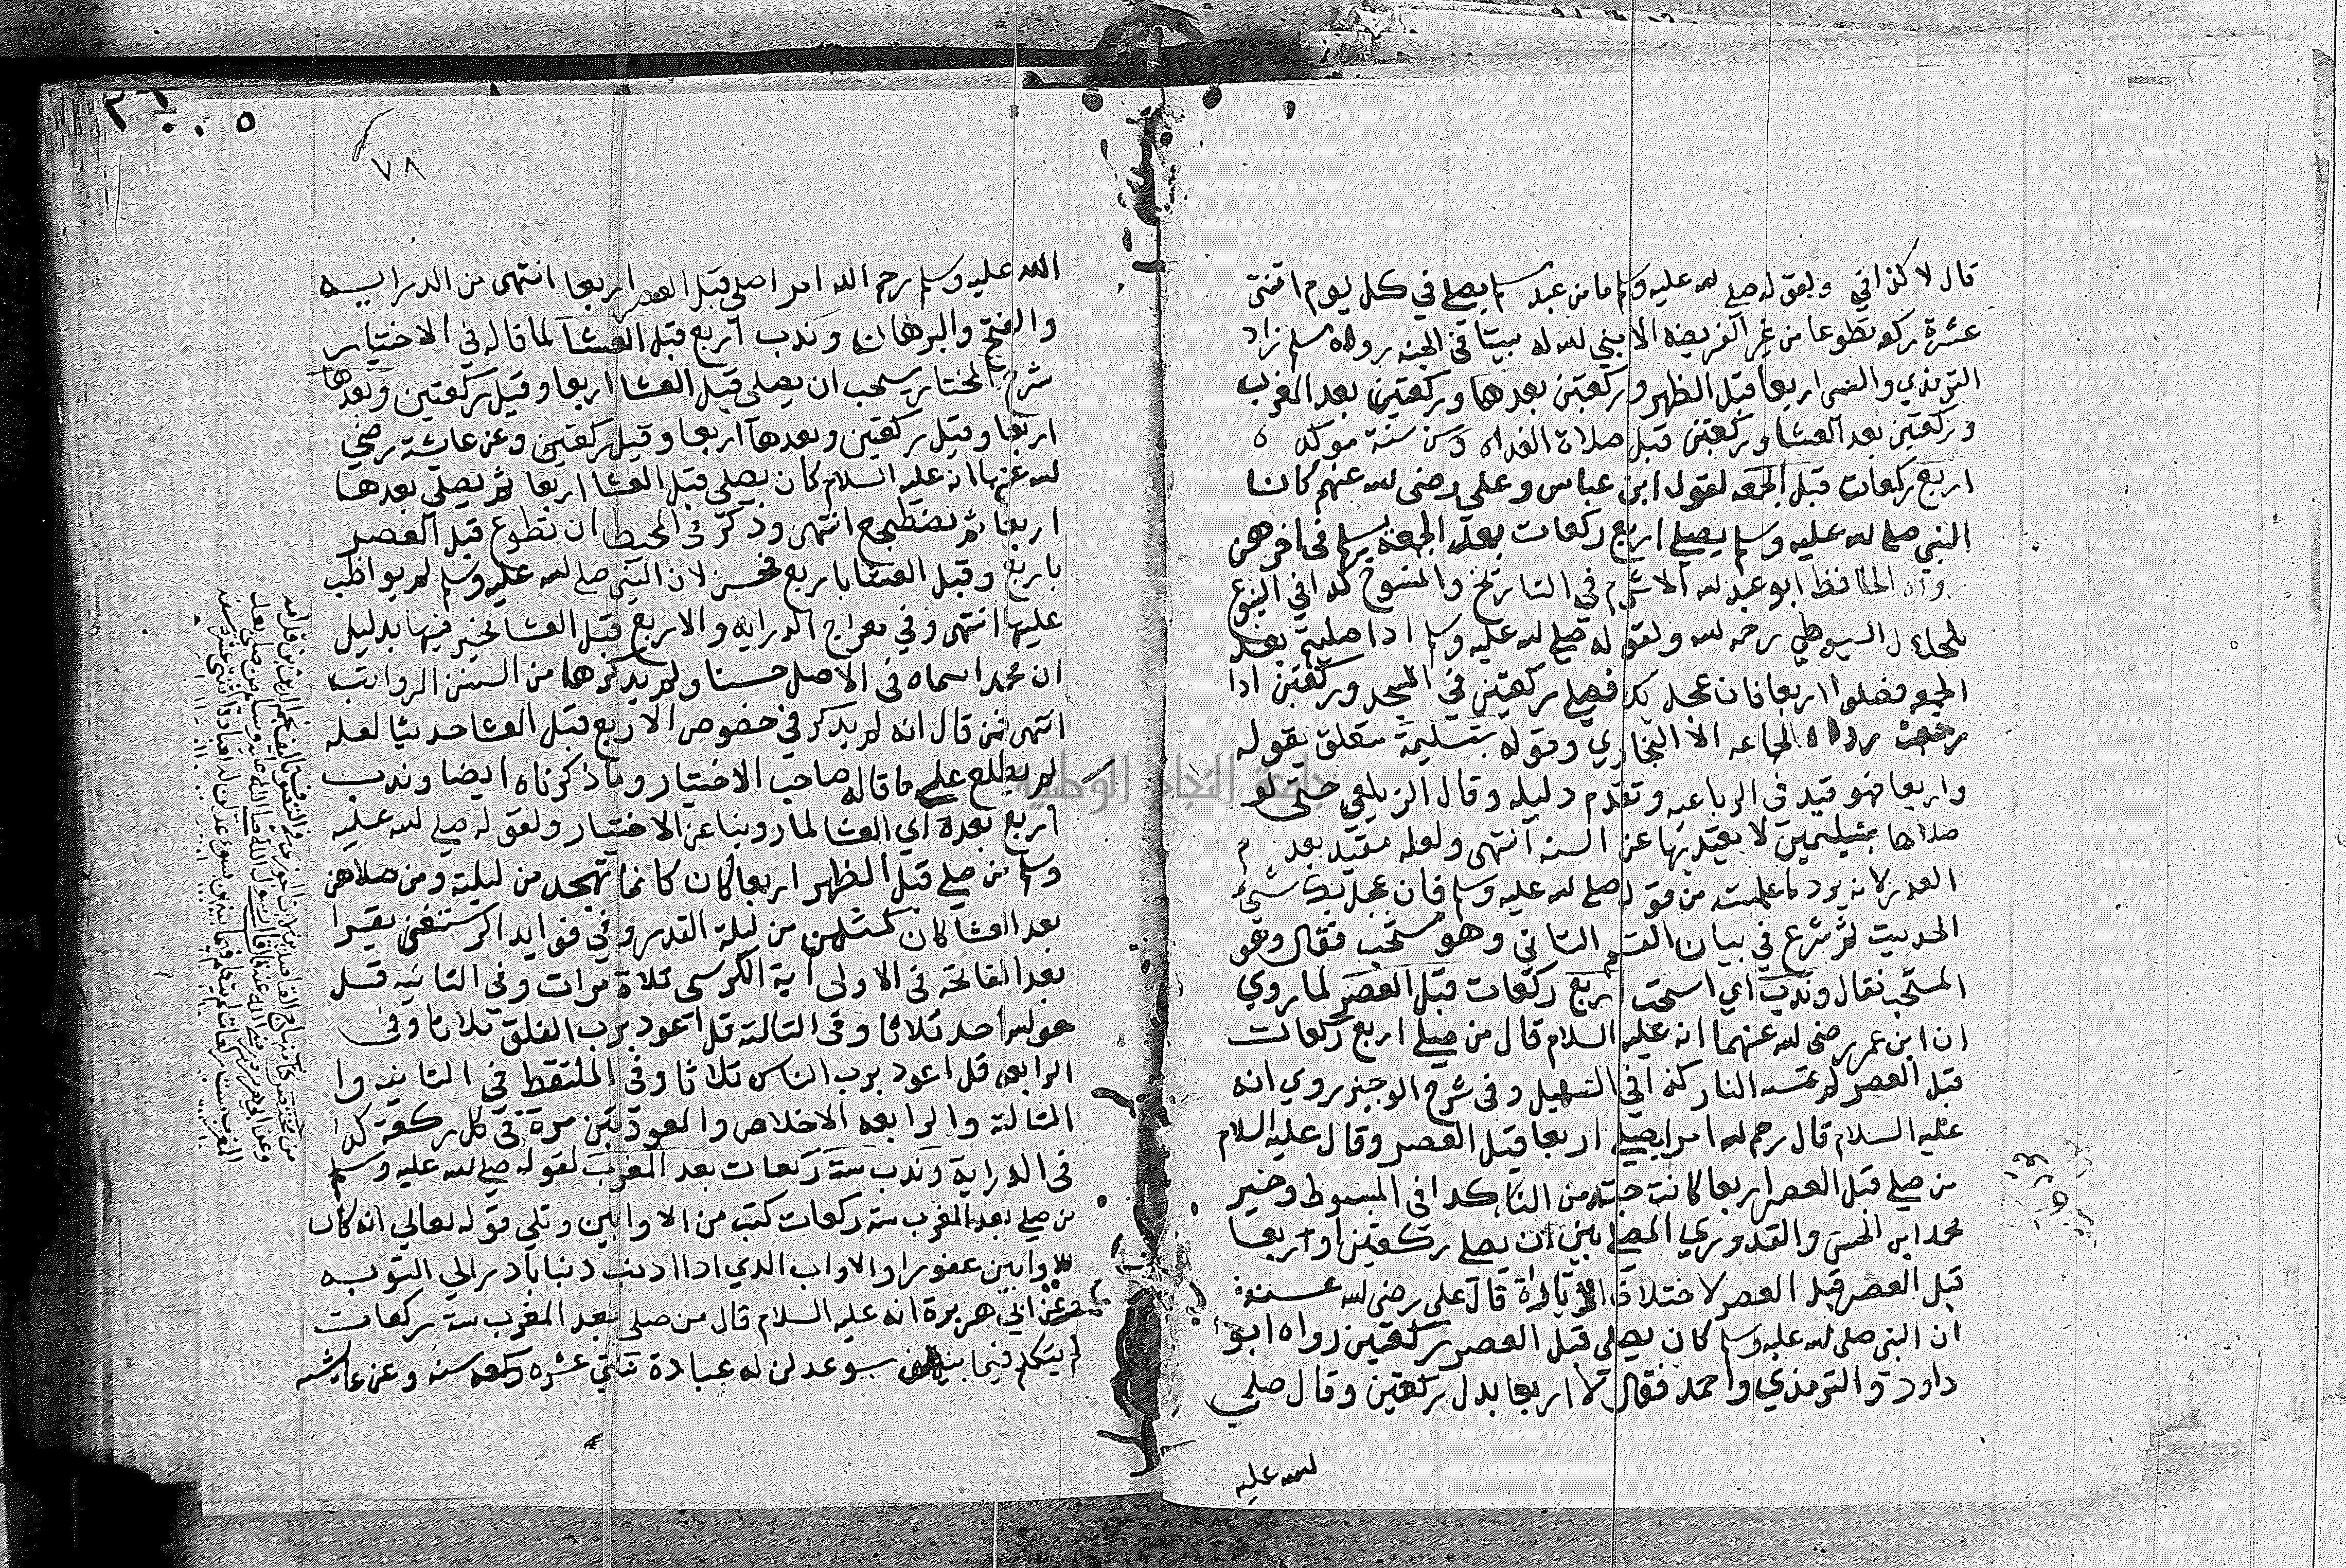 قال لا كذا في ولقوله صلى الله عليه وسلم ما من عبد مسلم يصلي في كل يوم اثنتى
عشرة ركعه تطوعا من غير الفريضه الا بني الله له بيتا في الجنه رواه مسلم زاد
الترمذي والنسى اربعا قبل الظهر وركعتين بعدها وركعتين بعد المغرب
وركعتين بعد العشا وركعتين قبل صلاة الغداه وسن سنة موكده
اربع ركعات قبل الجمعه لقول ابن عباس وعلي رضى الله عنهم كان
النبي صلى الله عليه وسلم يصلي اربع ركعات بعد الجمعه يسلم في اخرهن
رواه الحافظ ابو عبد الله الاشرم في التاريخ والمنسوخ كذا في الينبوع
للجلال السيوطي رحمه الله ولقوله صلى الله عليه وسلم اذا صليتم بعد
الجمعه فصلوا اربعا فان عجل بك فصلي ركعتين في المسجد وركعتين اذا
رجعت رواه الجماعه الا البخاري وقوله بتسليمة متعلق بقوله
واربعا فهو قيد في الرباعيه وتقدم دليله وقال الزيلعي حتى لو
صلاها بتسليمتين لا يعتد بها عن السنه انتهى ولعله مقيد بعدم
العذر لانه يرد ما علمت من قوله صلى الله عليه وسلم فان عجل بك شيئ
الحديث ثم شرع في بيان القسم الثاني وهو مستحب فقال وهو
المستحب فقال وندب اي استحب اربع ركعات قبل العصر لما روي
ان ابن عمر رضى الله عنهما انه عليه السلام قال من صلى اربع ركعات
قبل العصر لم تمسه النار كذا في التسهيل وفى شرح الوجيز روي انه
عليه السلام قال رحم الله امرا يصلي اربعا قبل العصر وقال عليه السلام
من صلى قبل العصر اربعا كانت جنة من النار كذا فى المبسوط وخير
محمد ابن الحسن والقدوري المصلي بين ان يصلي ركعتين او اربعا
قبل العصر قبل العصر لاختلاف الاثار قال علي رضى الله عنه
ان النبى صلى الله عليه وسلم كان يصلى قبل العصر ركعتين رواه ابو
داود والترمذي واحمد فقال لا اربعا بدل ركعتين وقال صلى
الله عليه
٧٨
الله عليه وسلم رحم الله امرا صلى قبل العصر اربعا انتهى من الدرايه
والفتح والبرهان وندب اربع قبل العشا لما قاله في الاختيار
شرح المختار يستحب ان يصلى قبل العشا اربعا وقيل ركعتين وبعدها
اربعا وقيل ركعتين وبعدها اربعا وقيل ركعتين وعن عايشة رضى
الله عنها انه عليه السلام كان يصلي قبل العشا اربعا ثم يصلي بعدها
اربعا ثم يضطجع انتهى وذكر فى المحيط ان تطوع قبل العصر
باربع وقبل العشا باربع فحسن لان النبي صلى الله عليه وسلم لم يواظب
عليها انتهى وفي معراج الدرايه والاربع قبل العشا نخير فيها بدليل
ان محمد اسماه فى الاصل حسنا ولم يذكرها من السنن الرواتب
انتهى فمن قال انه لم يذكر في خصوص الاربع قبل العشا حديثا لعله
لم يطلع على ما قاله صاحب الاختيار وما ذكرناه ايضا وندب
اربع بعده اي العشا لما روينا عن الاختيار ولقوله صلى الله عليه
وسلم من صلى قبل الظهر اربعا كان كانما تهجد من ليلته ومن صلاهن
بعد العشا كان كمثلهن من ليلة القدر وفي فوايد الرستغفني يقرا
بعد الفاتحة فى الاولى اية الكرسى ثلاث مرات وفي الثانيه قل
هو الله احد ثلاثا وفى الثالثه قل اعوذ برب الفلق ثلاثا وفى
الرابعه قل اعوذ برب الناس ثلاثا وفى الملتقط في الثانيه وا
الثالثة والرابعه الاخلاص والمعوذتين مرة في كل ركعة كذا
فى الدراية وندب ستة ركعات بعد المغرب لقوله صلى الله عليه وسلم
من صلى بعد المغرب سته ركعات كتب من الاوابين وتلى قوله تعالى انه كان
للاوابين غفورا والاواب الذي اذا اذنب ذنبا بادر الى التوبه
وعن ابي هريرة انه عليه السلام قال من صلى بعد المغرب ستة ركعات
لم يتكلم فيما بينهن بسوء عدلن له عبادة ثنتي عشره ركعه سنه وعن عايشه